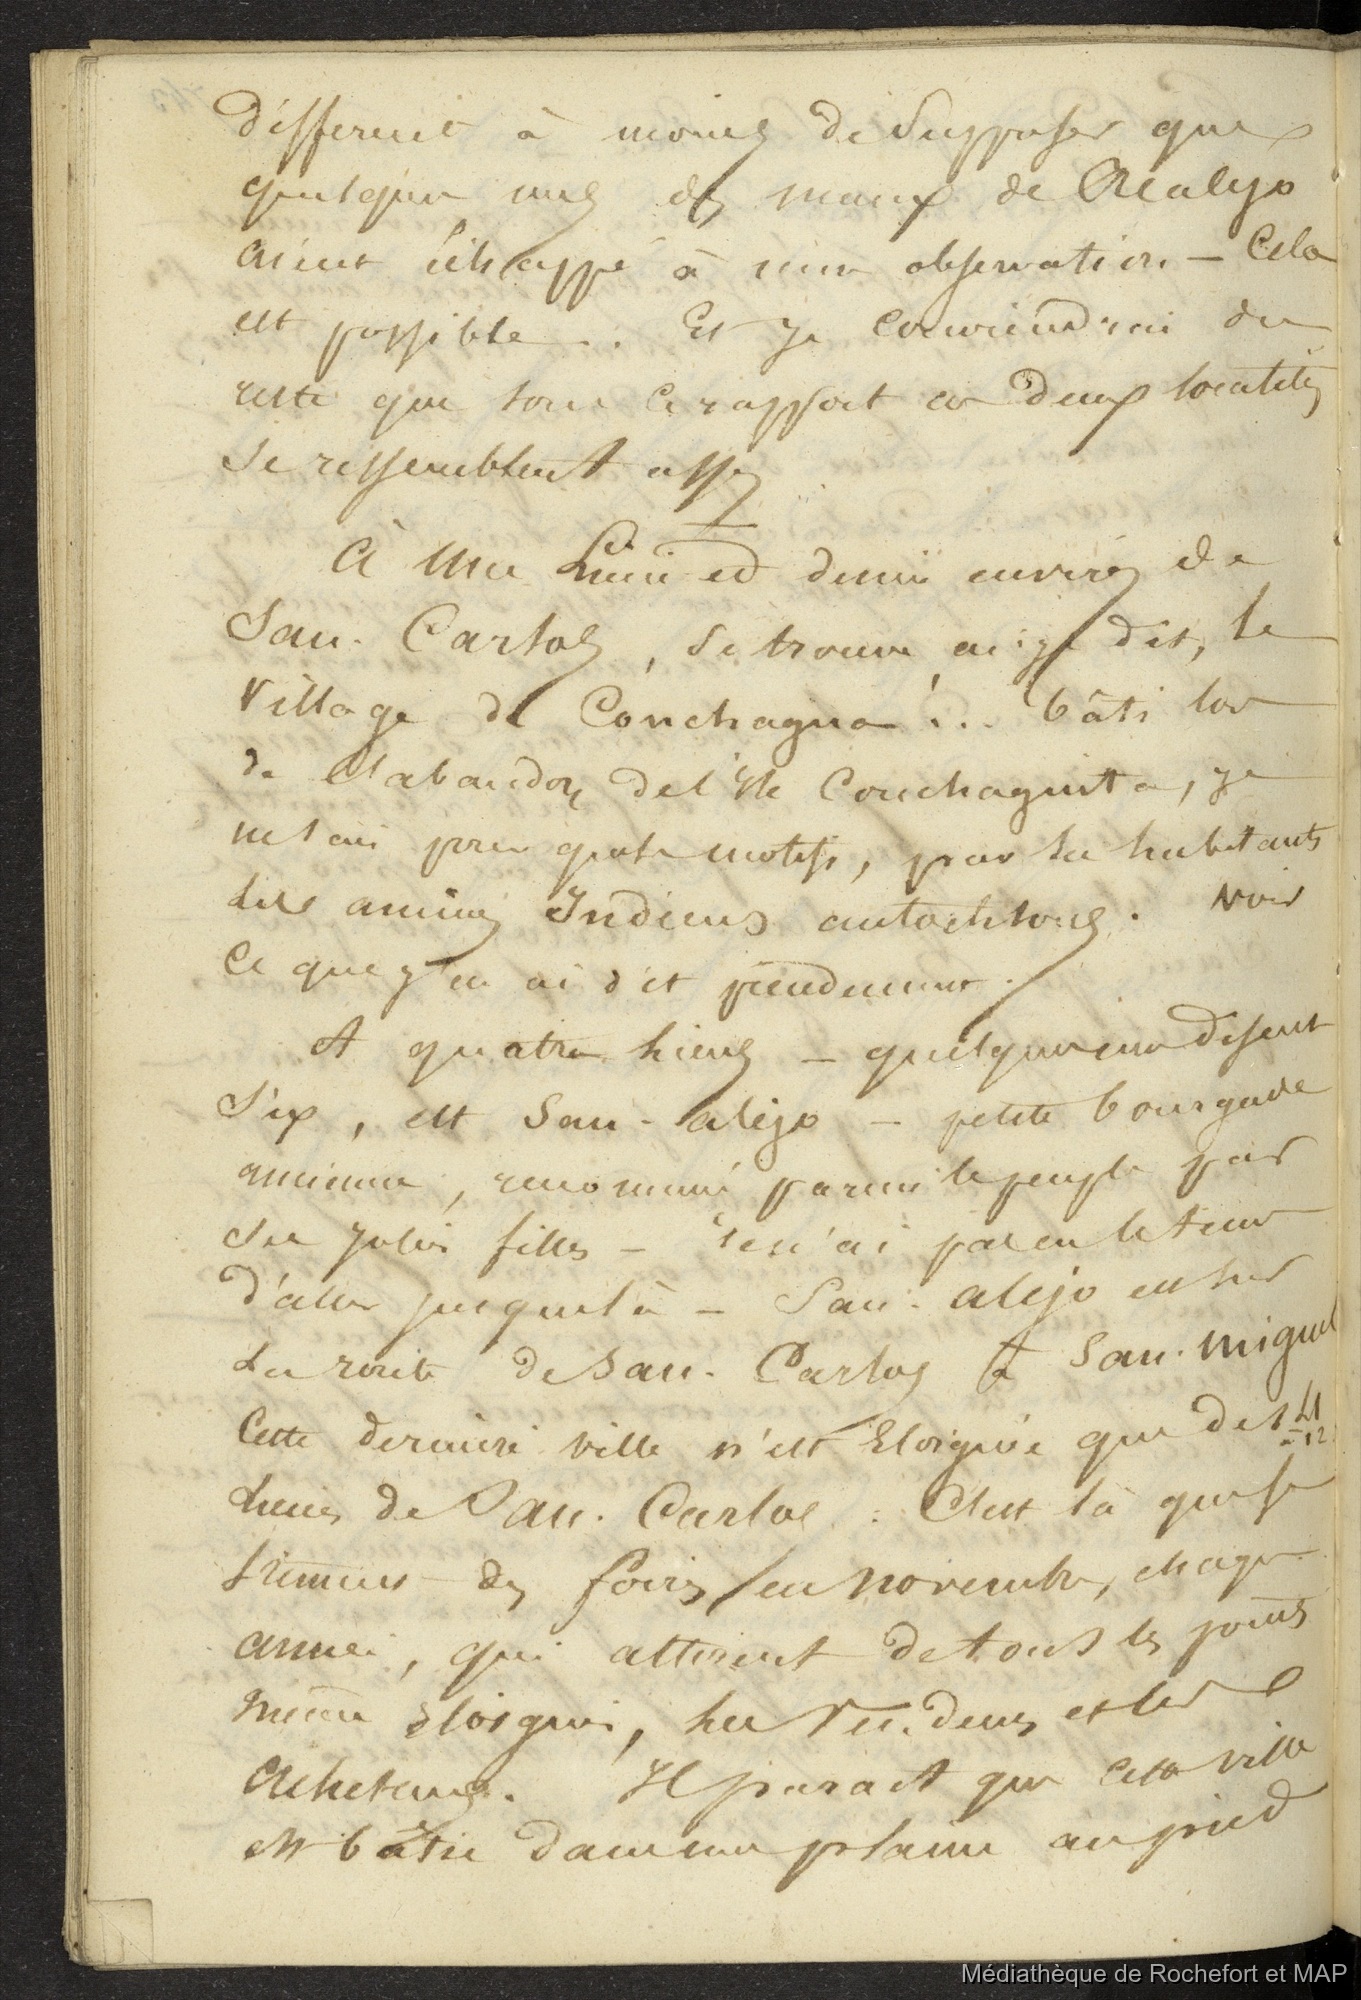 différent à moins de supposer que
quelques uns des maux de Réalejo
aient échappé à mon observation — Cela
est possible... Et je conviendrai du
reste que sous ce rapport ces deux localités
se ressemblent assez
À une Lieue et demie environ de
San-Carlos, se trouve, ai-je dit, le
village de Conchagua!... bâti lors
de l'abandon de l'île Conchaguita, je
ne sais pour quels motifs, par les habitants
des anciens Indiens autochtones. Voir
ce que j'en ai dit précédemment.
A quatre lieues — quelques uns disent
Six, est San-alejo — petite bourgade
ancienne, renommée parmi le peuple par
ses jolies filles — Je n'ai pas eu le tems
d'aller jusque là — San-alejo est sur
La route de San-Carlos à San-Miguel
Cette dernière ville n'est Eloignée que de 11
à 12
Lieues de San-Carlos. C'est là que se
tiennent des foires, en novembre, chaque
année, qui attirent de tous les points
même éloignés, les Vendeurs et les
Acheteurs. Il parait que cette ville
est bâtie dans une plaine au pied
Médiathèque de Rochefort et MAP